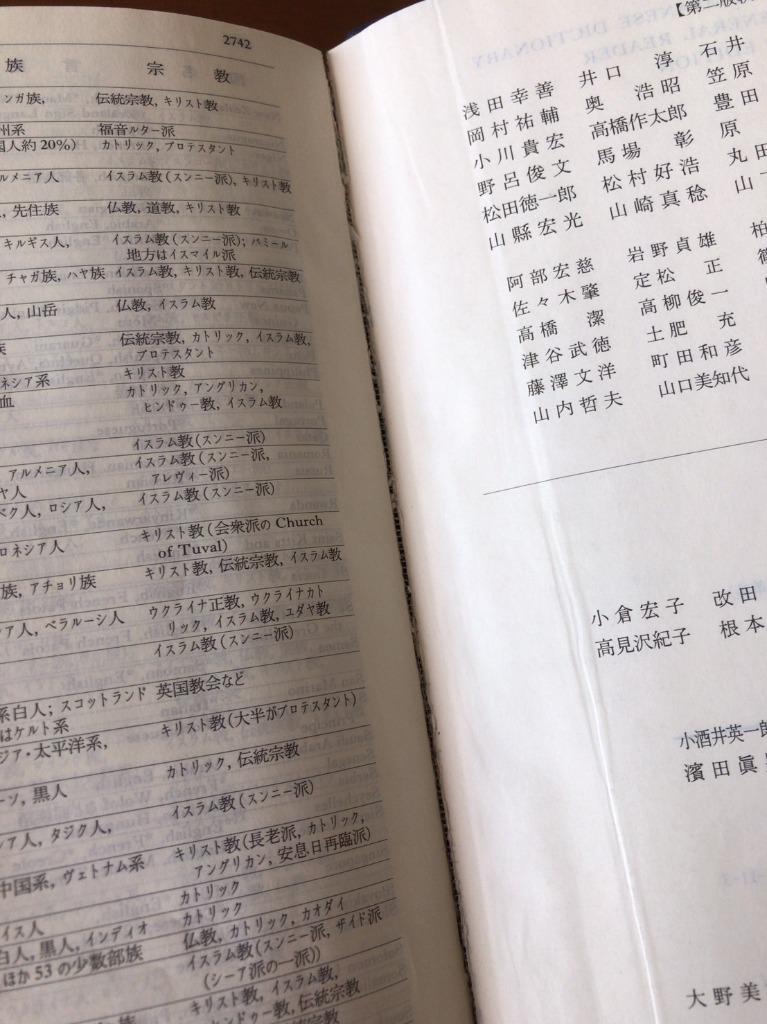 2742
族 宗教
ンガ族, 伝統宗教, キリスト教
州系 福音ルター派
国人約20%) カトリック, プロテスタント
ルメニア人 イスラム教(スンニー派), キリスト教
, 先住族 仏教, 道教, キリスト教
キルギス人, イスラム教(スンニー派); パミール
地方はイスマイル派
チャガ族, ハヤ族 イスラム教, キリスト教, 伝統宗教
人, 山岳 仏教, イスラム教
族 伝統宗教, カトリック, イスラム教,
プロテスタント
ネシア系 キリスト教
血 カトリック, アングリカン,
ヒンドゥー教, イスラム教
イスラム教(スンニー派)
アルメニア人, イスラム教(スンニー派,
ヤ人 アレヴィー派)
ベク人, ロシア人, イスラム教(スンニー派)
ロネシア人 キリスト教(会衆派の Church
of Tuval)
族, アチョリ族 キリスト教, 伝統宗教, イスラム教
ア人, ベラルーシ人 ウクライナ正教, ウクライナカト
リック, イスラム教, ユダヤ教
イスラム教(スンニー派)
系白人; スコットランド 英国教会など
はケルト系
ジア・太平洋系, キリスト教(大半がプロテスタント)
ーソ, 黒人 カトリック, 伝統宗教
ア人, タジク人, イスラム教(スンニー派)
中国系, ヴェトナム系 キリスト教(長老派, カトリック,
アングリカン, 安息日再臨派)
イス人 カトリック
白人, 黒人, インディオ カトリック
ほか53の少数部族 仏教, カトリック, カオダイ
イスラム教(スンニー派, ザイド派
(シーア派の一派))
族 キリスト教, イスラム教,
ドゥー教, 伝統宗教
【第二版執
浅田幸善 井口淳 石井
岡村祐輔 奥浩昭 笠原
小川貴宏 高橋作太郎 豊田
野呂俊文 馬場彰 原
松田徳一郎 松村好浩 丸田
山縣宏光 山崎真稔 山
阿部宏慈 岩野貞雄 柏
佐々木肇 定松正
高橋潔 高柳俊一
津谷武徳 土肥充
藤澤文洋 町田和彦
山内哲夫 山口美知代
小倉宏子 改田
高見沢紀子 根本
小酒井英一郎
濱田眞
大野美